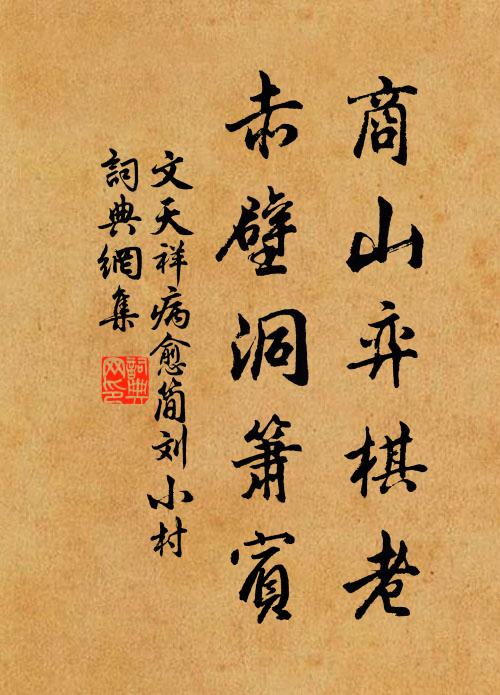 商山弈棋老
赤壁洞箫賓
文天祥病愈简刘小村
詞典網集
詞典網印